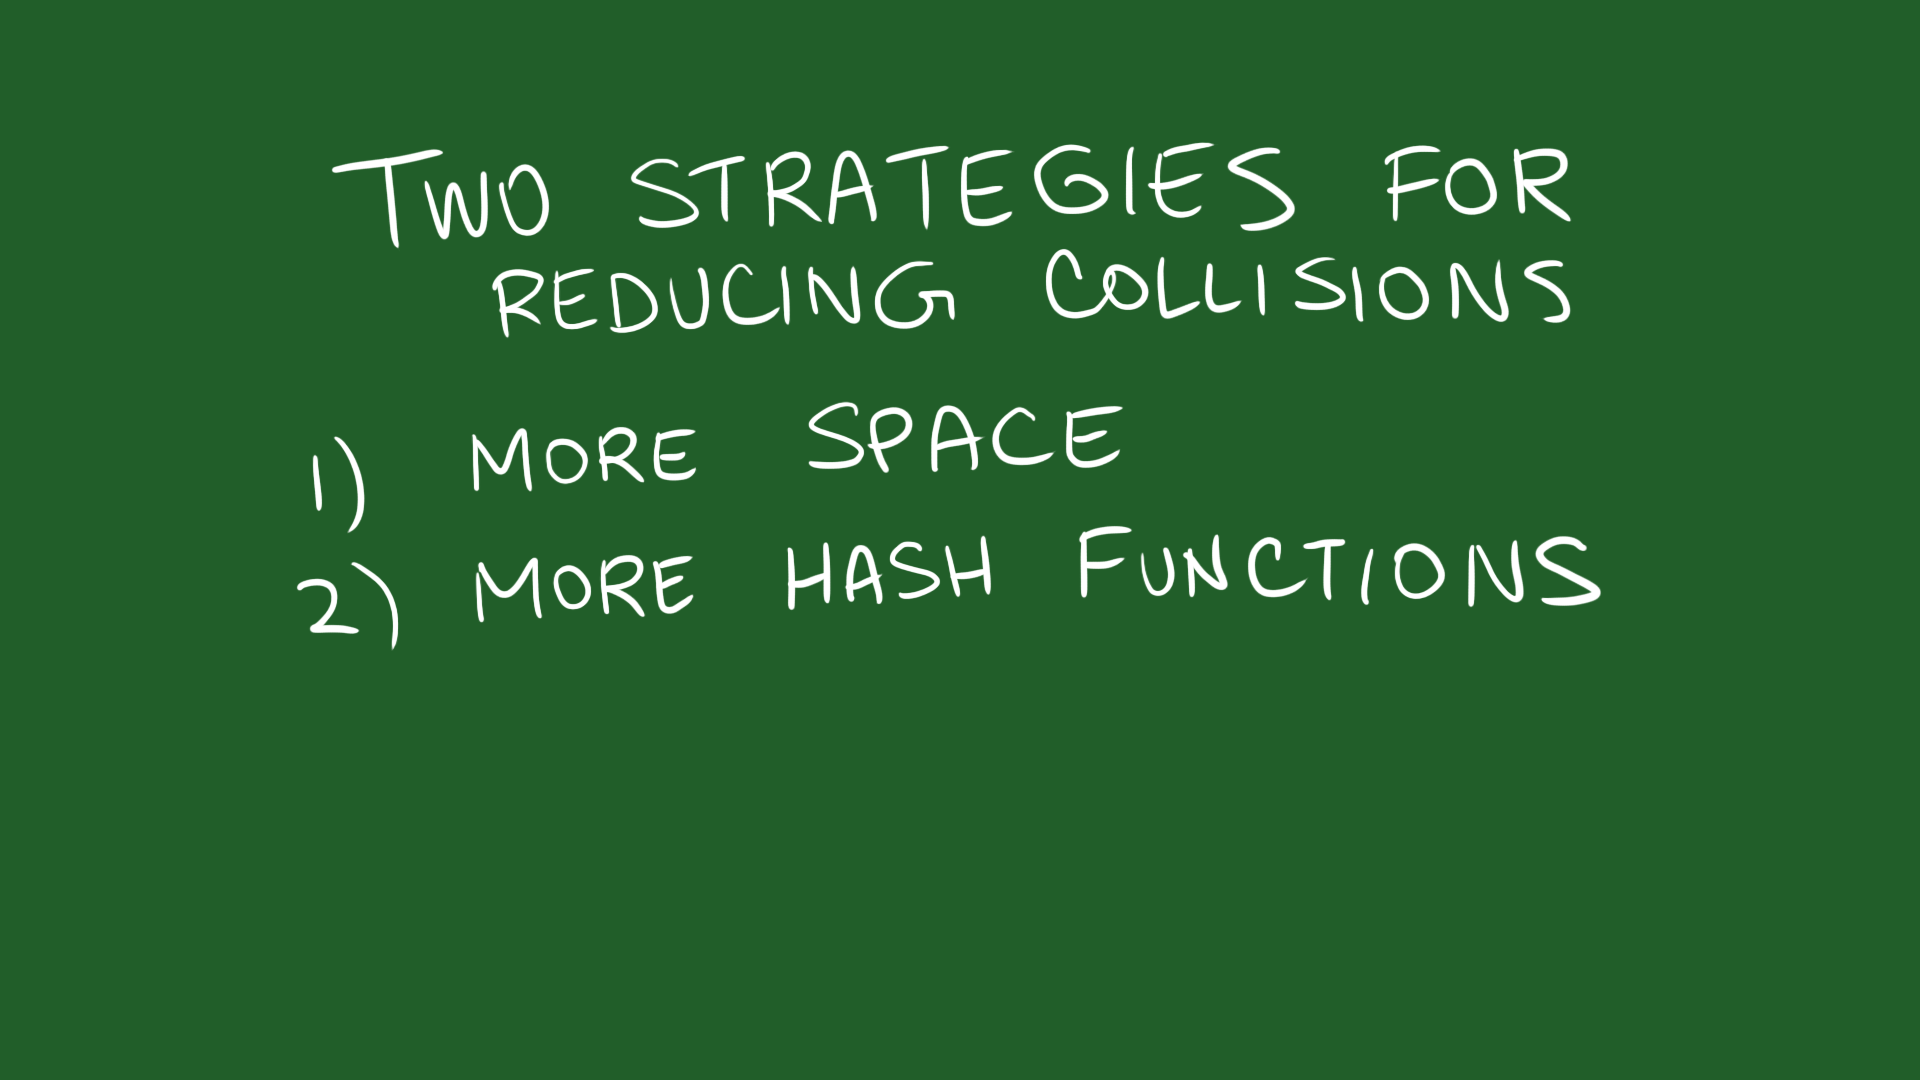 TWO STRATEGIES FOR
REDUCING COLLISIONS
1) MORE SPACE
2) MORE HASH FUNCTIONS